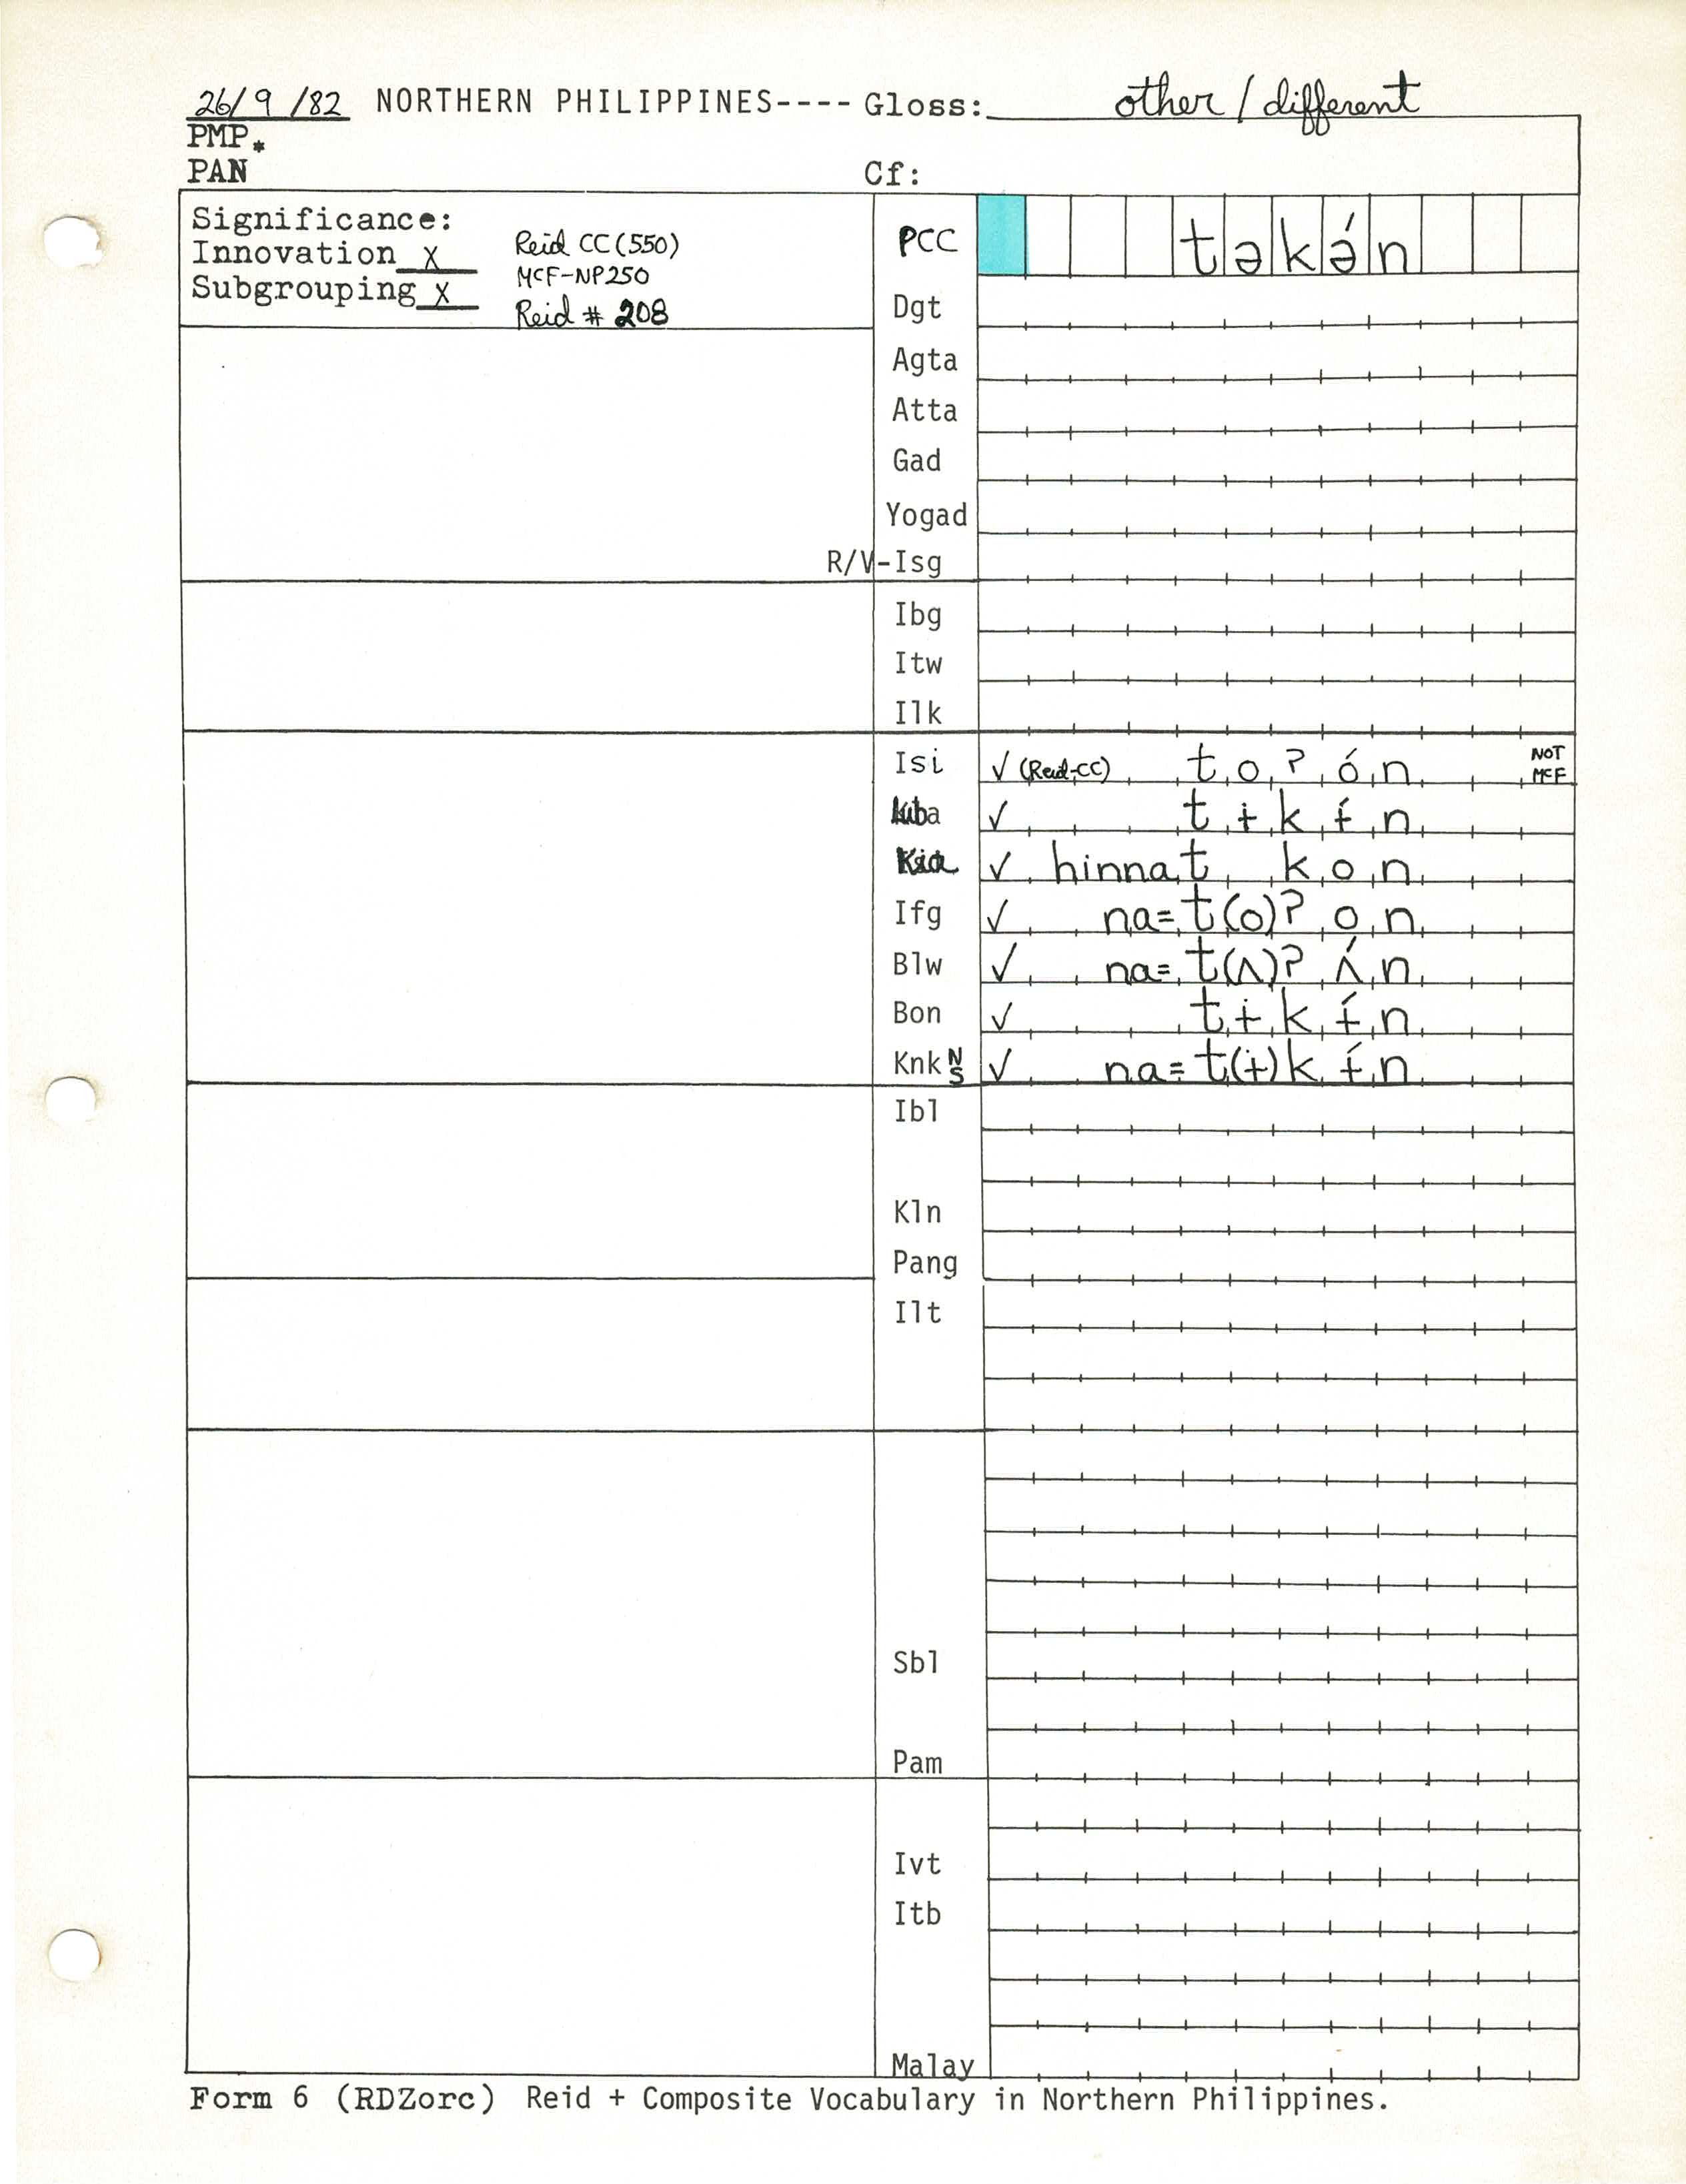 26/9/82 NORTHERN PHILIPPINES---- Gloss: other / different
PMP*
PAN Cf:
Significance:
Innovation X Reid CC (550)
MCF-NP250
Subgrouping X
Reid # 208
PCC təkə́n
Dgt
Agta
Atta
Gad
Yogad
R/V-Isg
Ibg
Itw
Ilk
Isi ✓ (Reid-CC) toʔón NOT MCF
✓ tɨkɨ́n
✓ hinnat kon
Ifg ✓ na=t(o)ʔon
Blw ✓ na=t(ʌ)ʔʌ́n
Bon ✓ tɨkɨ́n
Knk N S ✓ na=t(ɨ)kɨ́n
Ibl
Kln
Pang
Ilt
Sbl
Pam
Ivt
Itb
Malay
Form 6 (RDZorc) Reid + Composite Vocabulary in Northern Philippines.